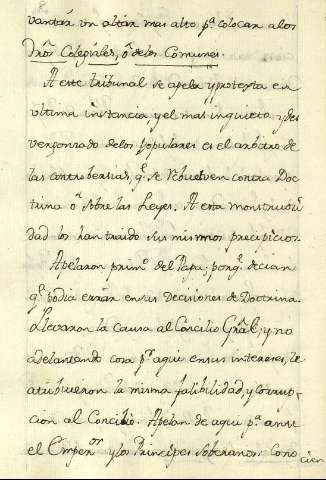 vantar un altar mas alto pª colocar a los
Dros Colegiales, ó de los Comunes.
A este tribunal se apela y protexta en
ultima instancia y el mas inquieto y des
vergonzado delos populares es el arbitro de
las controbersias, q.e se rebuelven contra Doc
trina ó sobre las Leyes. A esta monstruosi
dad los han traido sus mismos precipicios.
Apelaron primº del Papa; porq.e decian
q.e podia errar en sus Decisiones de Doctrina.
Llevaron la Causa al Concilio Grâl; y no
adelantando cosa pr aqui en sus intereses, le
atribuieron la misma falibilidad, y corrup-
cion al Concilio. Apelan de aqui pª ante
el Emperor y los Principes Soberanos. Cono
cien